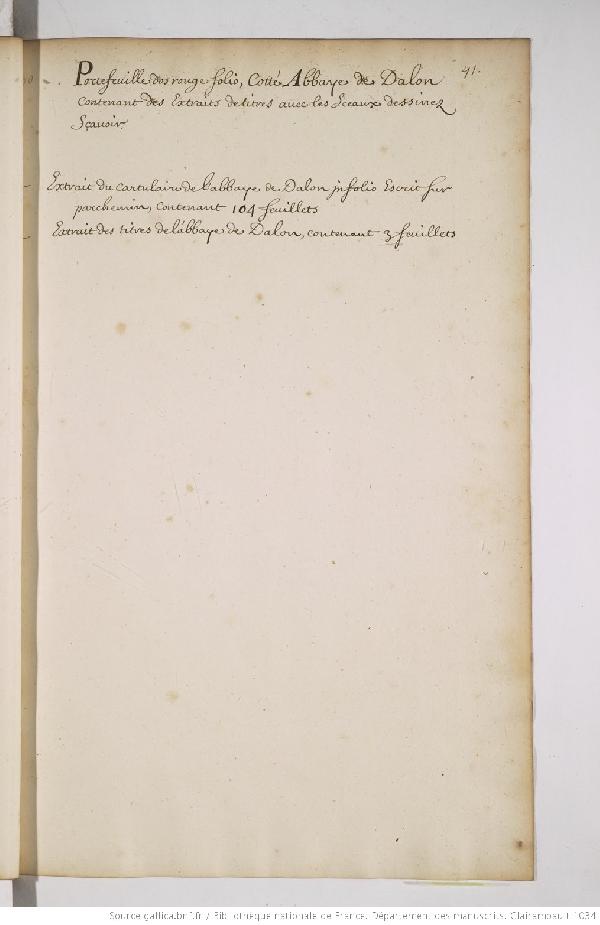 Portefeuille dos rouge folio, Cotté Abbaye de Dalon 41.
Contenant des Extraits de titres avec les Sceaux dessinez
Sçavoir
Extrait du Cartulaire de l'abbaye de Dalon jnfolio Escrit sur
parchemin, Contenant 104 feuillets
Extrait des titres de l'abbaye de Dalon, contenant 3 feuillets
Source gallica.bnf.fr / Bibliothèque nationale de France. Département des manuscrits. Clairambault 1034